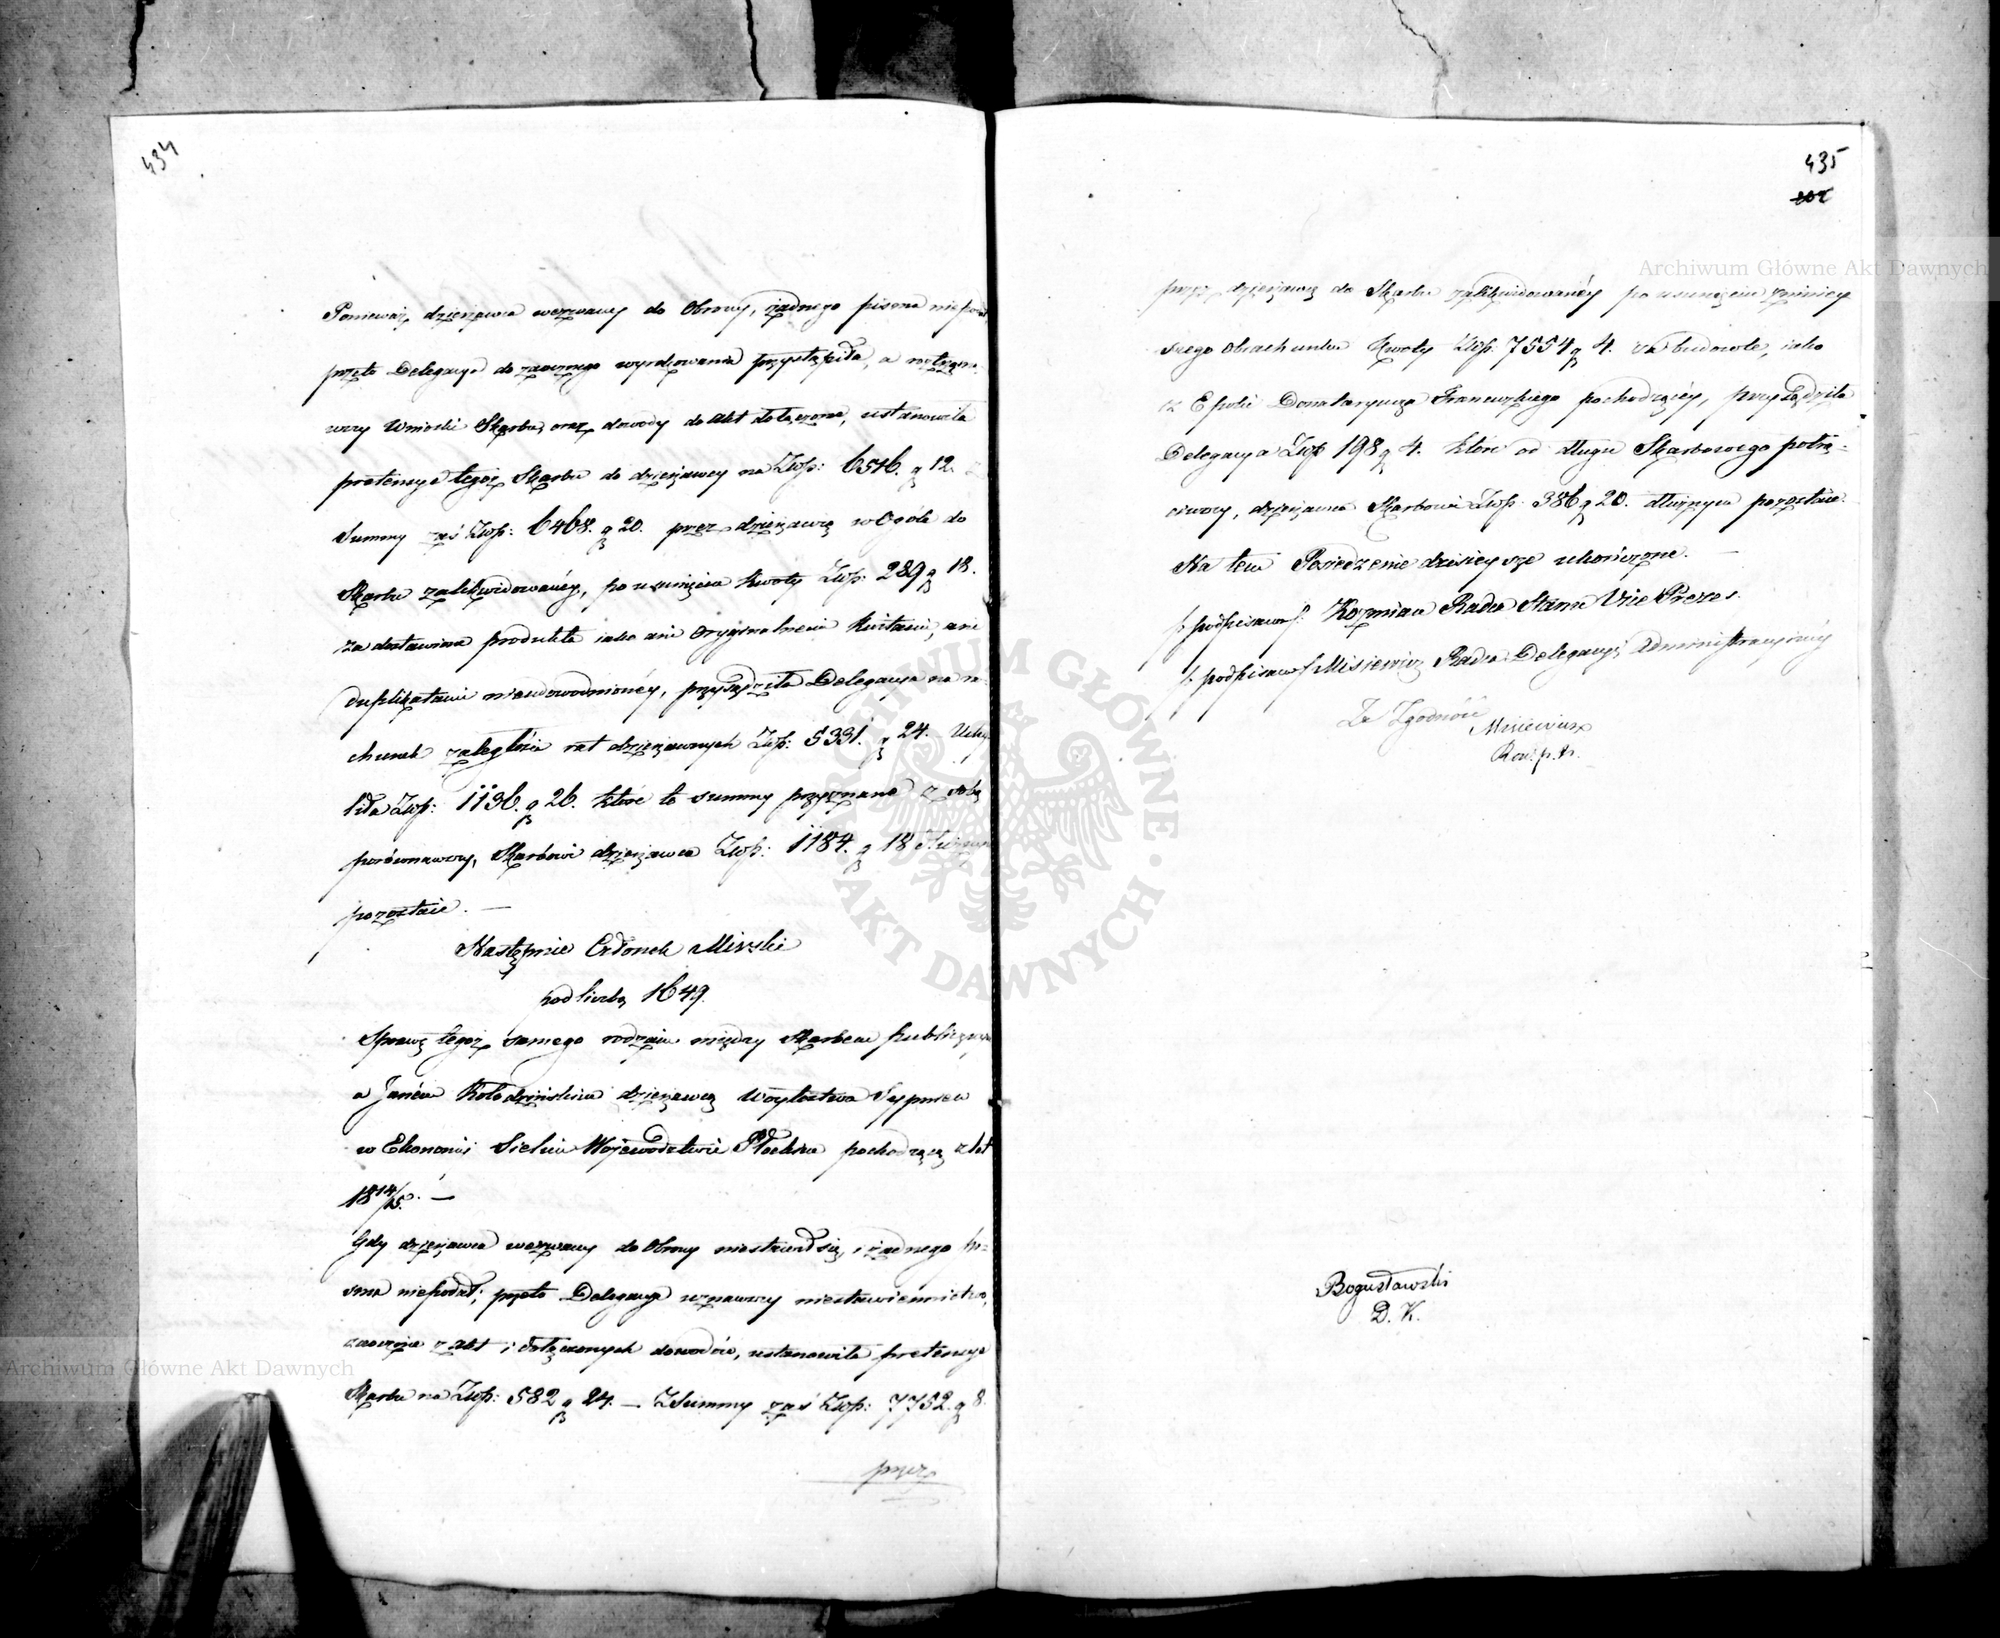 434
Ponieważ dzierżawca wezwany do Obrony, żadnego pisma niepodał,
przeto Delegacya do zaocznego wyrokowania przystąpiła, a roztrząsną-
wszy Wnioski Skarbu, oraz dowody do akt dołączone, ustanowiła
pretensye tegoż Skarbu do dzierżawcy na Złtp: 6516. g 12. z
Summy zaś Złtp: 6468. g 20. przez dzierżawcę w Ogóle do
Skarbu zalikwidowanéy, po usunięciu kwoty Złtp: 289 g 18.
za dostawione produkta iako ani Oryginalnemi kwitami, ani
duplikatami nieudowodnionéy, przysądziła Delegacya na ra-
chunek zaległości rat dzierżawnych Złtp: 5331. g 24. Uchy-
liła Złtp: 1136. g 26. które to summy przyznane z sobą
porównawszy, Skarbowi dzierżawca Złtp: 1184. g 18 dłużnym
pozostaie. —
Następnie Członek Mirski
pod liczbą 1649.
Sprawę tegoż samego rodzaiu między Skarbem publicznym
a Janem Kołodzińskim dzierżawcą Woytostwa Sypniew
w Ekonomii Sieluń Województwie Płockim pochodzącą z lat
1814/15. —
Gdy dzierżawca wezwany do Obrony niestawił się, i żadnego pi-
sma niepodał; przeto Delegacya uznawszy niestawiennictwo,
zaocznie z akt i dołączonych dowodów, ustanowiła pretensye
Skarbu na Złtp: 582 g 24. — Z Summy zaś Złtp: 7752. g 8.
przez
435
przez dzierżawcę do Skarbu zalikwidowanéy po usunięciu z niniey-
szego obrachunku kwoty Złtp. 7554 g 4. za budowle, iako
z Epoki Donataryusza Francuzkiego pochodzącéy, przysądziła
Delegacya Złtp 198 g 4. które od długu Skarbowego potrą-
ciwszy, dzierżawca Skarbowi Złtp. 386 g 20. dłużnym pozostaie.
Na tem Posiedzenie dzisieysze ukończone. —
/: podpisano :/ Kozmian Radca Stanu Vice Prezes.
/: podpisano :/ Misiewicz Radca Delegacyi Administracyinéy
Za Zgodność Misiewicz
Rad. p. k.
Bogusławski
D. K.
Archiwum Główne Akt Dawnych
Archiwum Główne Akt Dawnych
ARCHIWUM GŁÓWNE · AKT DAWNYCH ·